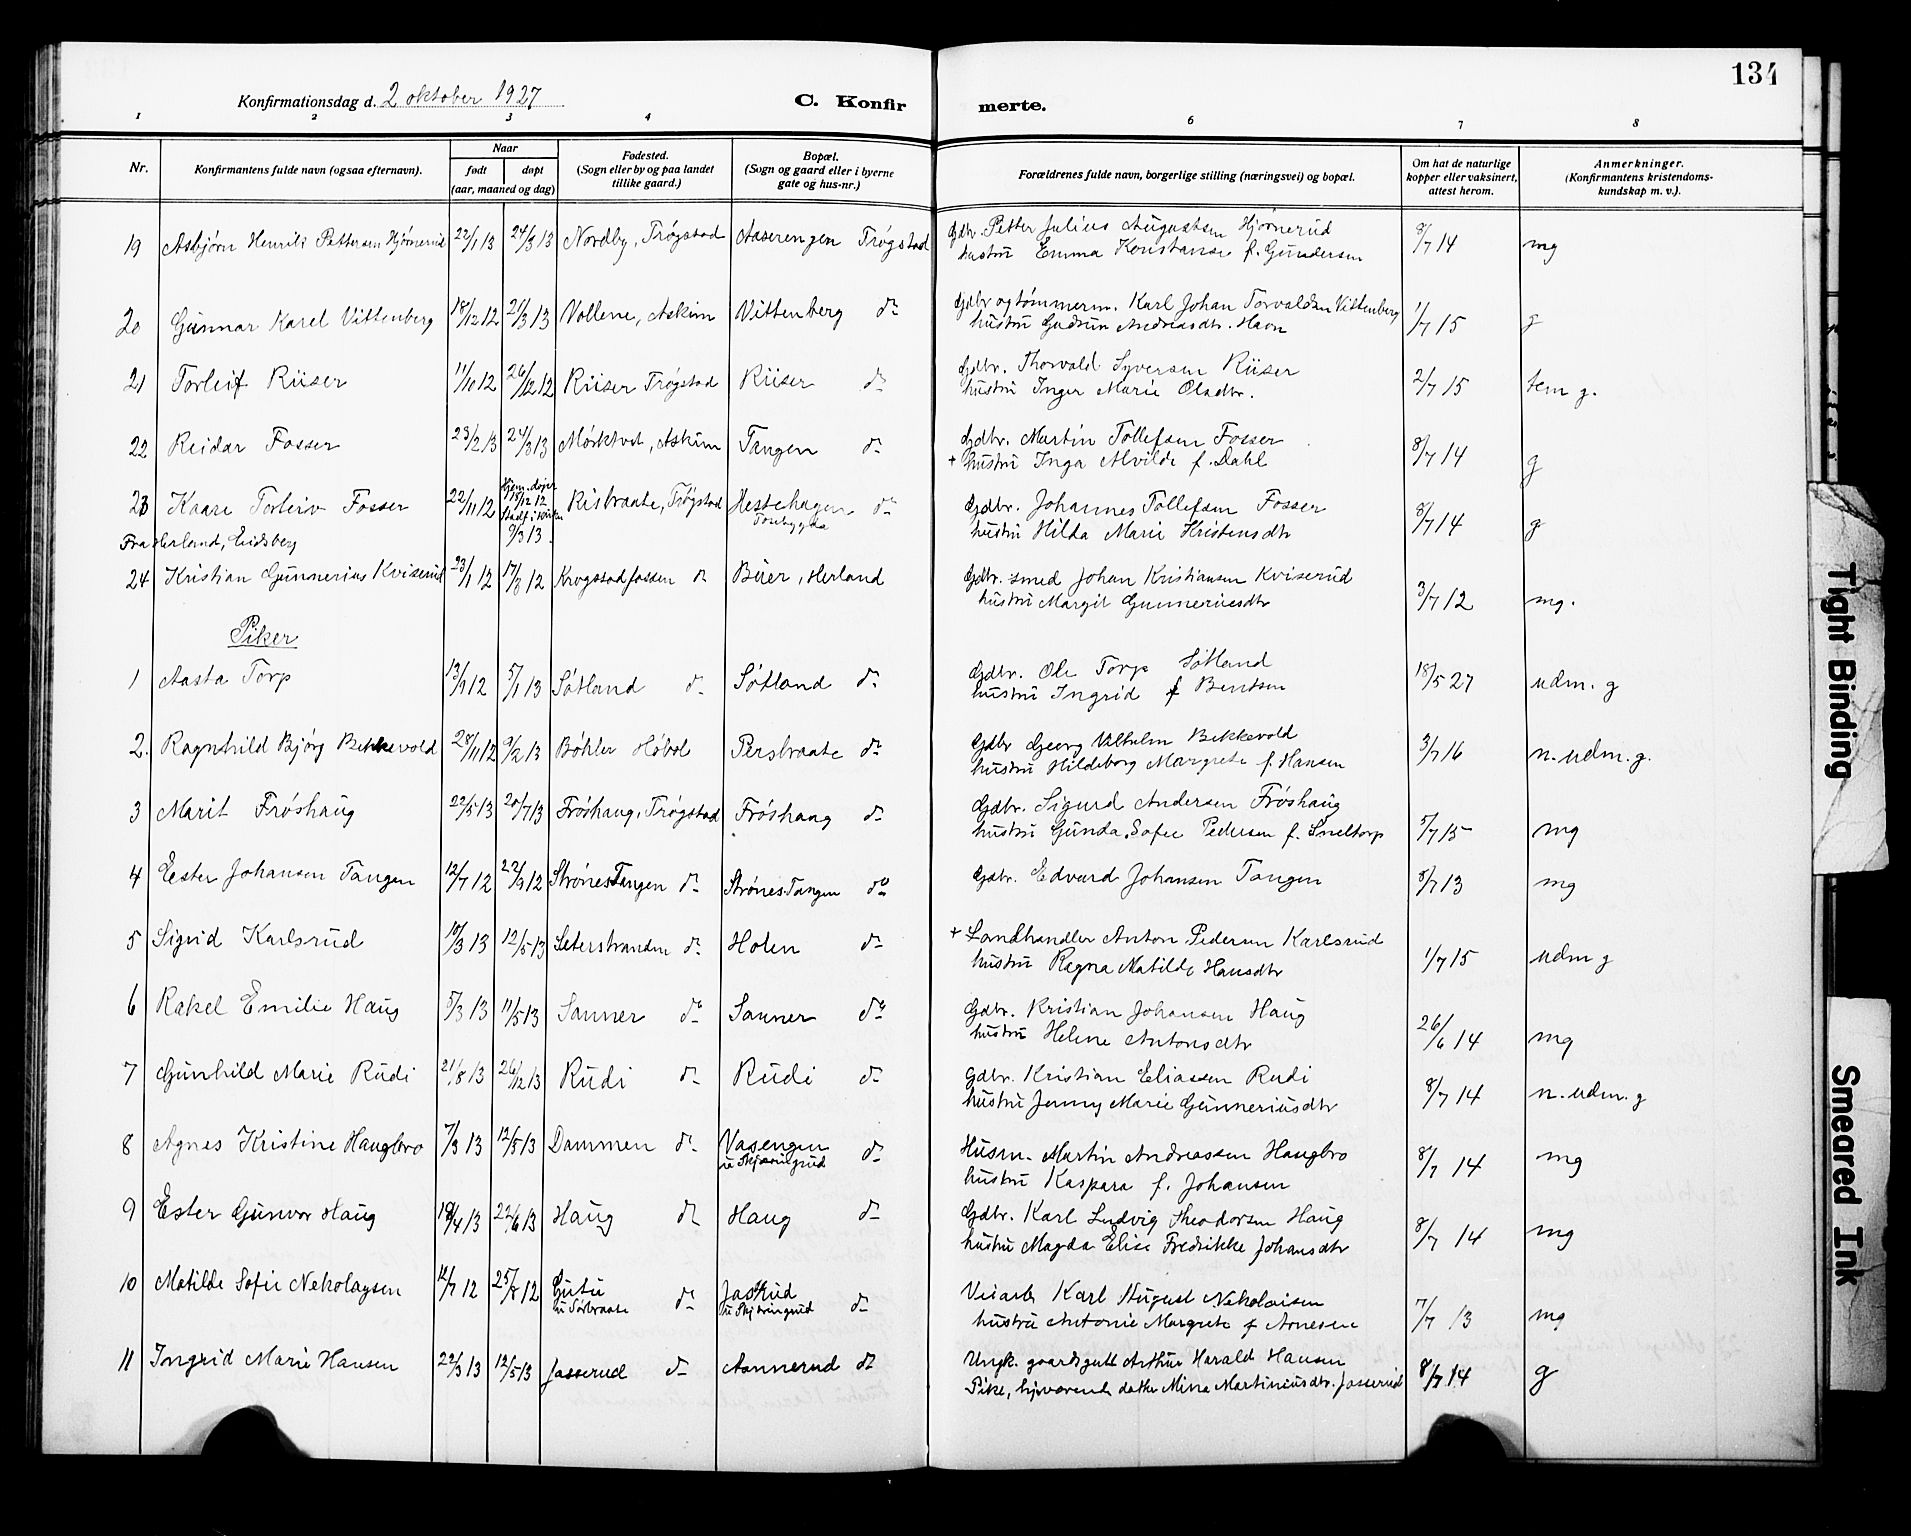 134
Konfirmationsdag d. 2 oktober 1927
C. Konfirmerte.
1 2 3 4 6 7 8
Nr.
Konfirmantens fulde navn (ogsaa efternavn).
Naar
født døpt
(aar, maaned og dag)
Fødested.
(Sogn eller by og paa landet
tillike gaard.)
Bopæl.
(Sogn og gaard eller i byerne
gate og hus-nr.)
Forældrenes fulde navn, borgerlige stilling (næringsvei) og bopæl.
Om hat de naturlige
kopper eller vaksinert,
attest herom.
Anmerkninger.
(Konfirmantens kristendoms-
kundskap m. v.).
19 Asbjørn Henrik Pettersen Hjørnerud 22/1 13 24/3 13 Nordby, Trøgstad Aaserengen Trøgstad Gdbr. Petter Julius Augustsen Hjørnerud 8/7 14 mg
hustru Emma Konstanse f. Gundersen
20 Gunnar Karel Vittenberg 18/12 12 21/3 13 Vollene, Askim Vittenberg do Gdbr og tømmerm. Karl Johan Torvaldsen Vittenberg 1/7 15 g
hustru Gudrun Andreasdtr. Havn
21 Torleif Riiser 11/10 12 26/12 12 Riiser Trøgstad Riiser do Gdbr. Thorvald Syversen Riiser 2/7 15 tem g.
hustru Inger Marie Olsdtr.
22 Reidar Fosser 23/2 13 24/3 13 Mørktvet, Askim Tangen do Gdbr. Martin Tollefsen Fosser 8/7 14 g
+ hustru Inga Alvilde f. Dahl
23 Kaare Torleiv Fosser 22/11 12 Hjem.døpt 15/12 12 Stadf. i kirken 9/3 13. Risbraate, Trøgstad Hestehagen do Gdbr. Johannes Tollefsen Fosser 8/7 14 g
hustru Hilda Marie Kristensdtr
Fra Herland, Eidsberg
24 Kristian Gunnerius Kviserud 23/1 12 17/3 12 Krogstadfossen do Buer, Herland Gdbr. smed Johan Kristiansen Kviserud 3/7 12 mg.
hustru Margit Gunneriusdtr
Piker
1 Aasta Torp 13/9 12 5/1 13 Søtland do Søtland do Gdbr. Ole Torp Søtland 18/5 27 udm. g
hustru Ingrid f Bentsen
2. Ragnhild Bjørg Bekkevold 28/11 12 9/2 13 Bøhler Høbøl Persbraate do Gdbr Georg Vilhelm Bekkevold 3/7 16 n. udm. g.
hustru Hildeborg Margrete f. Hansen
3 Marit Frøshaug 22/5 13 20/7 13 Frøshaug, Trøgstad Frøshaug do Gdbr. Sigurd Andersen Frøshaug 5/7 15 mg
hustru Gunda Sofie Pedersen f. Sneltorp
4 Ester Johansen Tangen 12/7 12 22/9 12 StrønesTangen do StrønesTangen do Gdbr. Edvard Johansen Tangen 8/7 13 mg
5 Sigrid Karlsrud 10/3 13 12/5 13 Seterstranden do Holen do + Landhandler Anton Pedersen Karlsrud 1/7 15 udm g
hustru Ragna Matilde Hansdtr
6 Rakel Emilie Haug 5/3 13 11/5 13 Sanner do Sanner do Gdbr. Kristian Johansen Haug 26/6 14 mg
hustru Helene Antonsdtr
7 Gunhild Marie Rudi 21/8 13 26/12 13 Rudi do Rudi do Gdbr. Kristian Eliassen Rudi 8/7 14 n. udm. g
hustru Jenny Marie Gunneriusdtr
8 Agnes Kristine Haugbro 7/3 13 12/5 13 Dammen do Vasengen do Husm. Martin Andreassen Haugbro 8/7 14 mg
u Skjæringrud hustru Kaspara f. Johansen
9 Ester Gunvor Haug 18/4 13 22/6 13 Haug do Haug do Gdbr. Karl Ludvig Theodorsen Haug 8/7 14 mg
hustru Magda Elise Fredrikke Johansdtr
10 Matilde Sofie Nekolaysen 12/7 12 25/8 12 Gutu do Jaskud do Veiarb Karl August Nekolaisen 7/7 13 mg
u Sørbraate u Skjæringrud hustru Antonie Margrete f Arnesen
11 Ingrid Marie Hansen 22/3 13 12/5 13 Josserud do Aannerud do Ungk. gaardsgutt Arthur Harald Hansen 8/7 14 g
Pike, hjemværende datter Mina Martiniusdtr. Josserud
Tight Binding
Smeared Ink